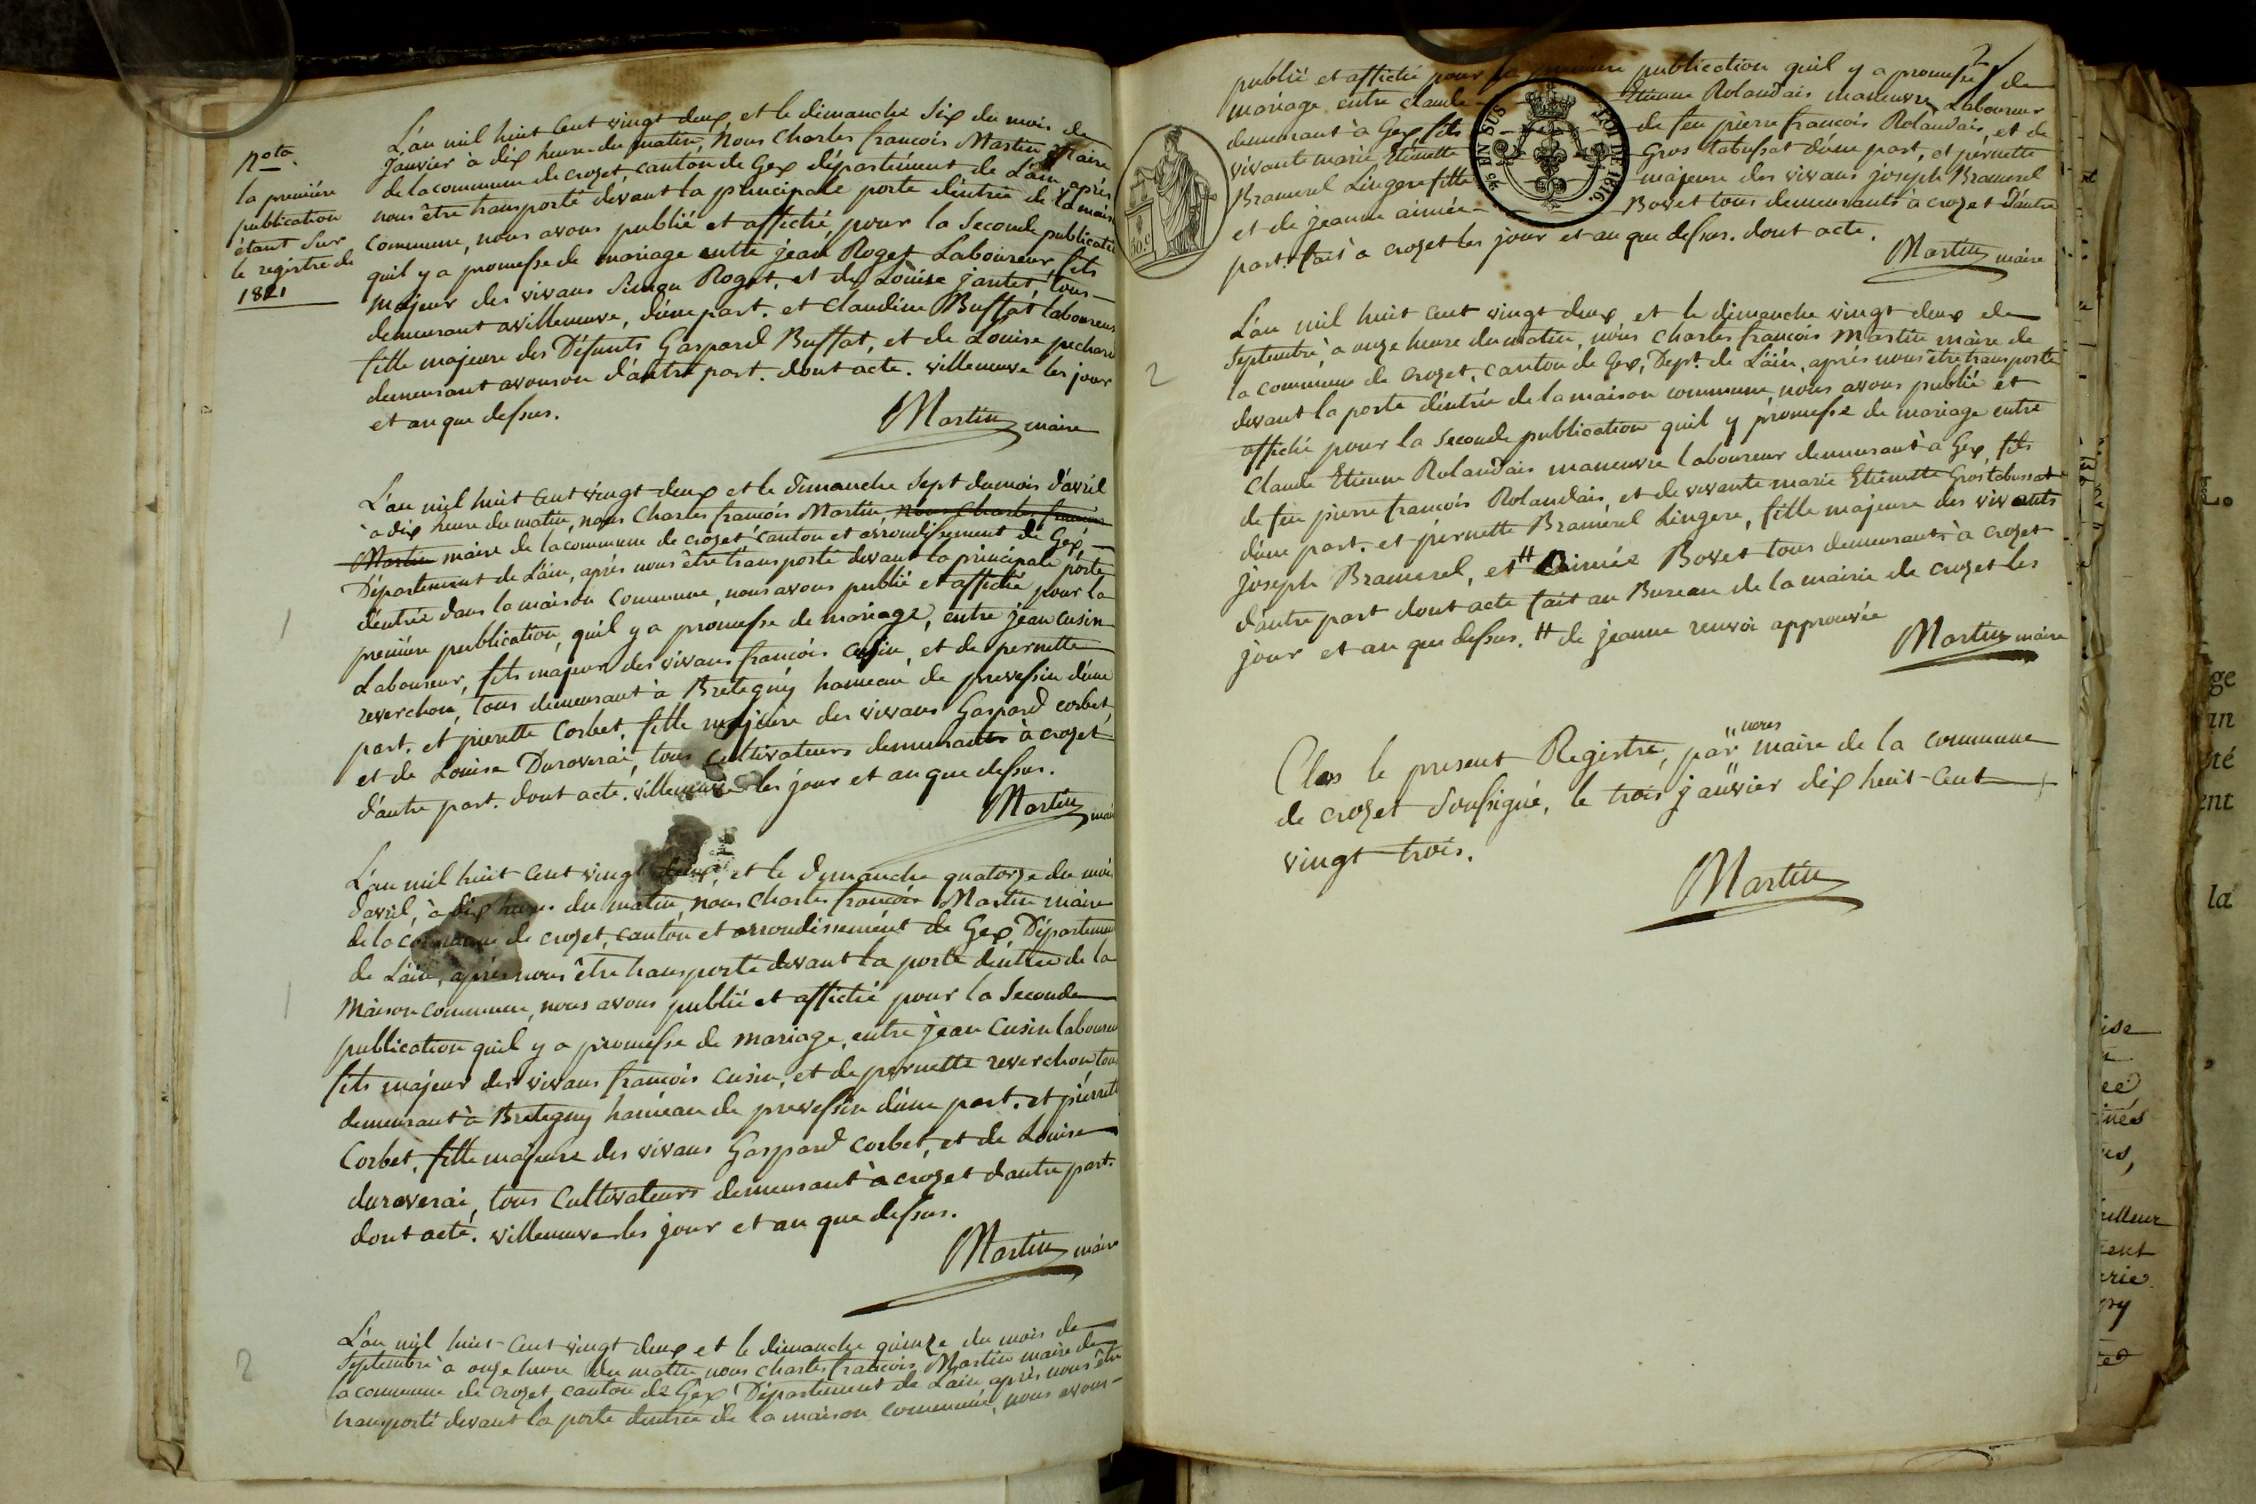 nota
la premiére
publication
étant sur
le registre de
1821
L'an mil huit cent vingt deux et le dimanche six du mois de
janvier à dix heure du matin, Nous Charles françois Martin Maire
de la commune de crozet, canton de Gex département de L'ain après
nous être transporté devant la principale porte d'entrée de la maison
commune, nous avons publié et affiché, pour la seconde publication
quil y a promesse de mariage entre jean Roget Laboureur fils
majeur des vivans Simon Roget, et de Louise jantet, tous
demeurant a villeneuve, d'une part. et Claudine Buffat laboureur
fille majeure des Défunts Gaspard Buffat, et de Louise pechard
demeurant avouson d'autre part. dont acte. villeneuve les jour
et an que dessus.
Martin maire
L'an mil huit cent vingt deux et le dimanche sept du mois d'avril
à dix heure du matin, nous Charles françois Martin nous Charles françois
Martin maire de la commune de crozet canton et arrondissement de Gex
Département de L'ain, après nous être transporté devant la principale porte
d'entrée dans la maison commune, nous avons publié et affiché pour la
1
premiére publication, qu'il y a promesse de mariage, entre jean cusin
Laboureur, fils majeur des vivans françois cusin, et de pernette
reverchon, tous demeurant à Bretegny hameau de prevessin d'une
part. et pierrette Corbet. fille majeure des vivans Gaspard corbet,
et de Louise Duroverai, tous cultivateurs demeurants à crozet
d'autre part. dont acte. villeneuve les jour et an que dessus.
Martin mai
L'an mil huit cent vingt deux, et le dimanche quatorze du moi
d'avril, à dix heure du matin, nous Charles françois Martin maire
de la commune de crozet, canton et arrondissement de Gex Département
de L'ain, après nous être transporté devant la porte d'entrée de la
1
Maison commune, nous avons publié et affiché pour la Seconde
publication quil y a promesse de mariage, entre jean Cusin laboureur
fils majeur des vivans françois cusin, et de pernette reverchon, tous
demeurant à Bretegny hameau de prevessin d'une part. et pierrette
Corbet, fille majeure des vivans Gaspard corbet, et de Louise
duroverai, tous Cultivateurs demeurant à crozet d'autre part.
dont acte. villeneuve les jour et an que dessus.
Martin maire
2
L'an mil huit cent vingt deux et le dimanche quinze du mois de
Septembre à onze heure du matin nous charles françois Martin maire de
la commune de crozet canton de Gex Département de Lain après nous être
transporté devant la porte d'entrée de la maison commune, nous avons
2
publié et affiché pour la premiere publication quil y a promesse de
mariage entre claude Etienne Rolandais maneuvre Laboureur
demeurant à Gex fils de feu pierre françois Rolandais, et de
vivante marie Etiennette Gros tabussat d'une part, et pérnette
Bramerel Lingere fille majeure des vivans joseph Bramerel
et de jeanne aimée Bovet tous demeurants à crozet d'autre
part. fait à crozet les jour et an que dessus. dont acte.
Martin maire
25 EN SUS
LOI DE 1816.
2
L'an mil huit cent vingt deux et le dimanche vingt deux de
Septembre à onze heure du matin, nous charles françois Martin maire de
la commune de crozet, canton de Gex, Dept. de L'ain, après nous être transporté
devant la porte d'entrée de la maison commune, nous avons publié et
affiché pour la seconde publication quil y promesse de mariage entre
Claude Etienne Rolandais maneuvre laboureur demeurant à Gex, fils
de feu pierre françois Rolandais, et de vivante marie Etiennette Gros tabussat
d'une part. et pérnette Bramerel Lingere, fille majeure des vivants
joseph Bramerel, et # Aimée Bovet tous demeurants à crozet
d'autre part dont acte fait au Bureau de la mairie de crozet les
jour et an que dessus. # de jeanne renvoi approuvée
Martin maire
Clos le present Registre, par nous maire de la commune
de crozet Soussigné, le trois janvier dix huit cent
vingt trois.
Martin